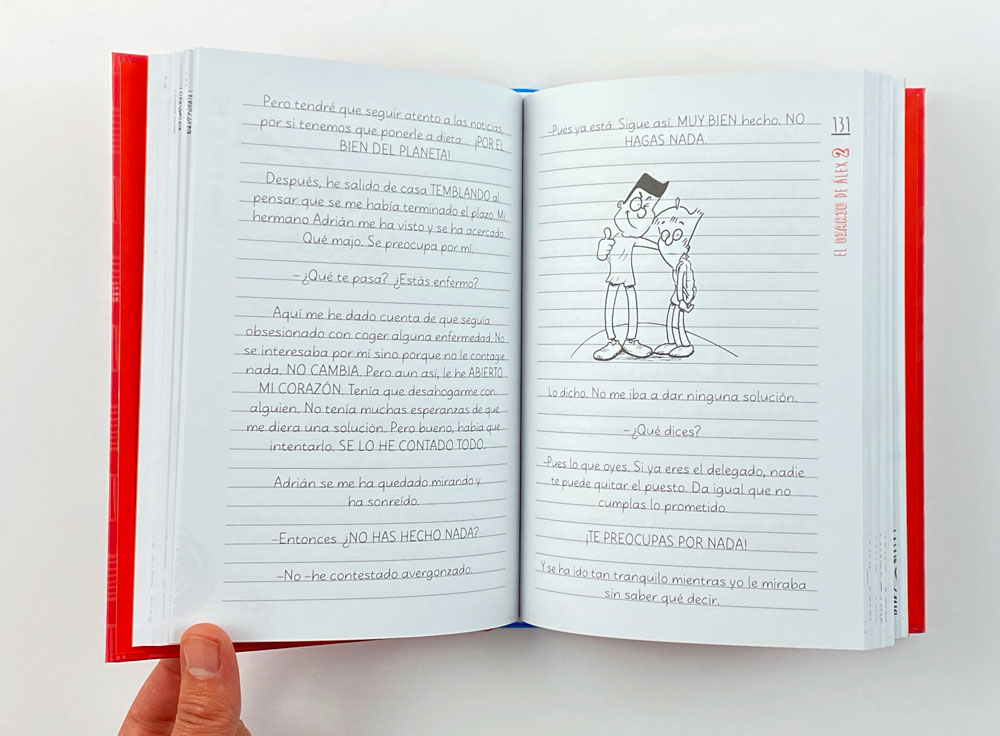 Pero tendré que seguir atento a las noticias,
por si tenemos que ponerle a dieta... ¡POR EL
BIEN DEL PLANETA!
Después, he salido de casa TEMBLANDO al
pensar que se me había terminado el plazo. Mi
hermano Adrián me ha visto y se ha acercado.
Qué majo. Se preocupa por mí.
– ¿Qué te pasa? ¿Estás enfermo?
Aquí me he dado cuenta de que seguía
obsesionado con coger alguna enfermedad. No
se interesaba por mí sino porque no le contagie
nada. NO CAMBIA. Pero aun así, le he ABIERTO
MI CORAZÓN. Tenía que desahogarme con
alguien. No tenía muchas esperanzas de que
me diera una solución. Pero bueno, había que
intentarlo. SE LO HE CONTADO TODO.
Adrián se me ha quedado mirando y
ha sonreído.
–Entonces ¿NO HAS HECHO NADA?
–No –he contestado avergonzado.
–Pues ya está. Sigue así. MUY BIEN hecho. NO
HAGAS NADA.
Lo dicho. No me iba a dar ninguna solución.
– ¿Qué dices?
–Pues lo que oyes. Si ya eres el delegado, nadie
te puede quitar el puesto. Da igual que no
cumplas lo prometido.
¡TE PREOCUPAS POR NADA!
Y se ha ido tan tranquilo mientras yo le miraba
sin saber qué decir.
131
EL DIARIO DE ÁLEX 2